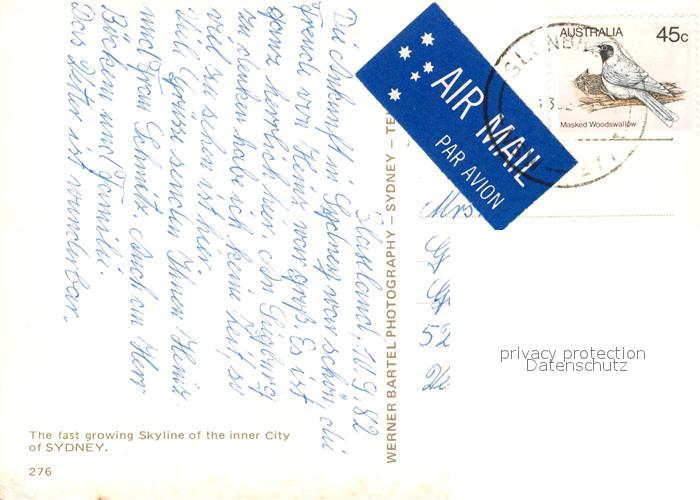 AUSTRALIA 45c
Masked Woodswallow
AIR MAIL
PAR AVION
Mrs.
52
privacy protection
Datenschutz
WERNER BARTEL PHOTOGRAPHY – SYDNEY – TE
11.9.82
Die Ankunft in Sydney war schön, die
Freude von Heinz war groß. Es ist
ganz herrlich hier. An Salzburg
zu denken habe ich keine Zeit, so
viel zu sehen ist hier.
Viele Grüsse senden Ihnen Heinz
und Frau Schmitz. Auch an Herr
und Familie.
Das Wetter ist wunderbar.
The fast growing Skyline of the inner City
of SYDNEY.
276